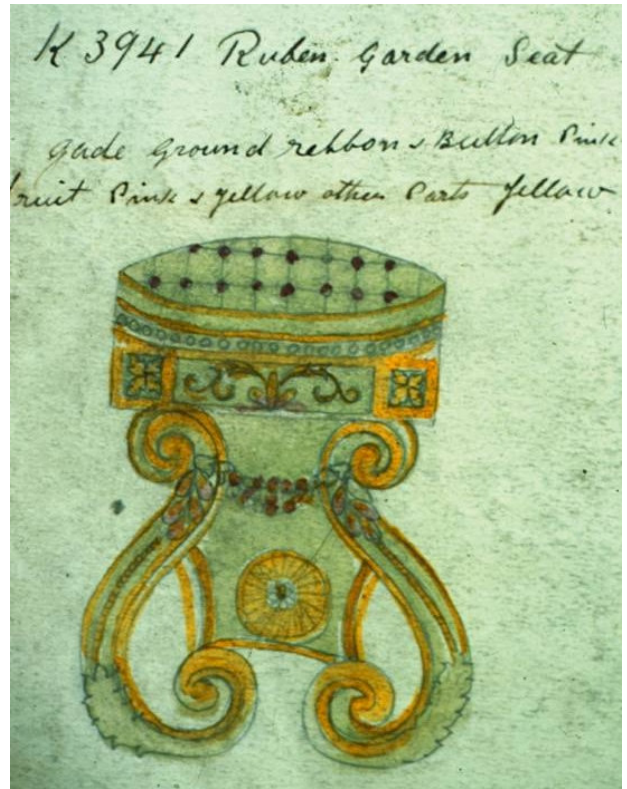 K 3941 Ruben. Garden Seat
gade Ground rebbons Button Pink
fruit Pink & yellow other Parts yellow